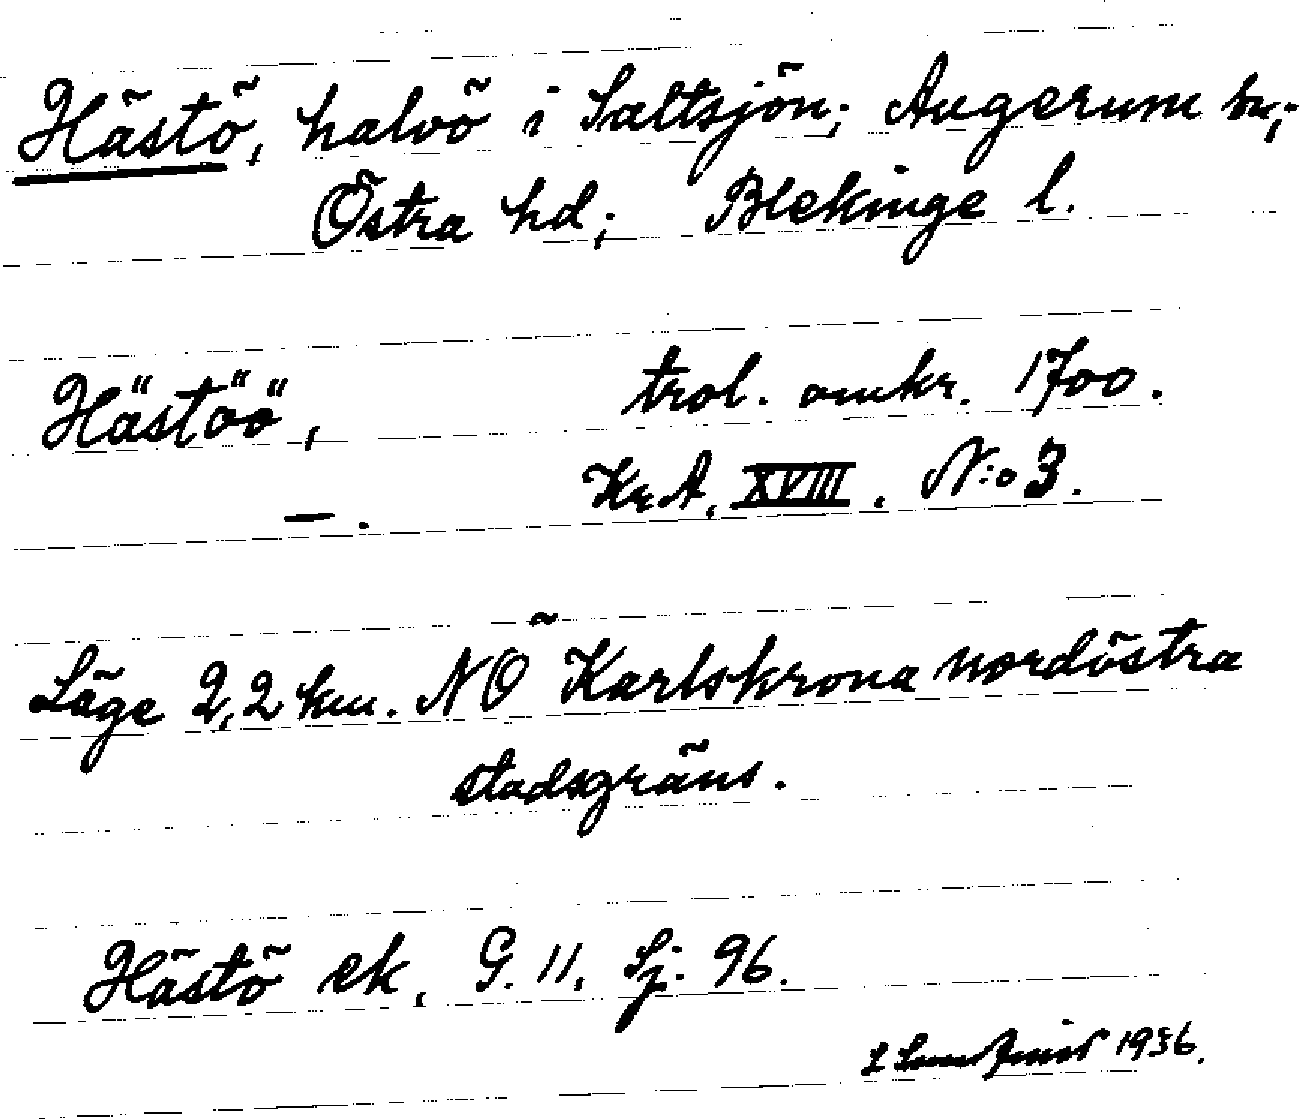 Hästö, halvö i Saltsjön; Augerum sn;
Östra hd; Blekinge l.
Hästöö, trol. omkr. 1700.
Kr A, XVIII. N:o 3.
—.
Läge 2,2 km. NÖ Karlskrona nordöstra
stadsgräns.
Hästö ek, G. 11. Sj. 96.
1936.